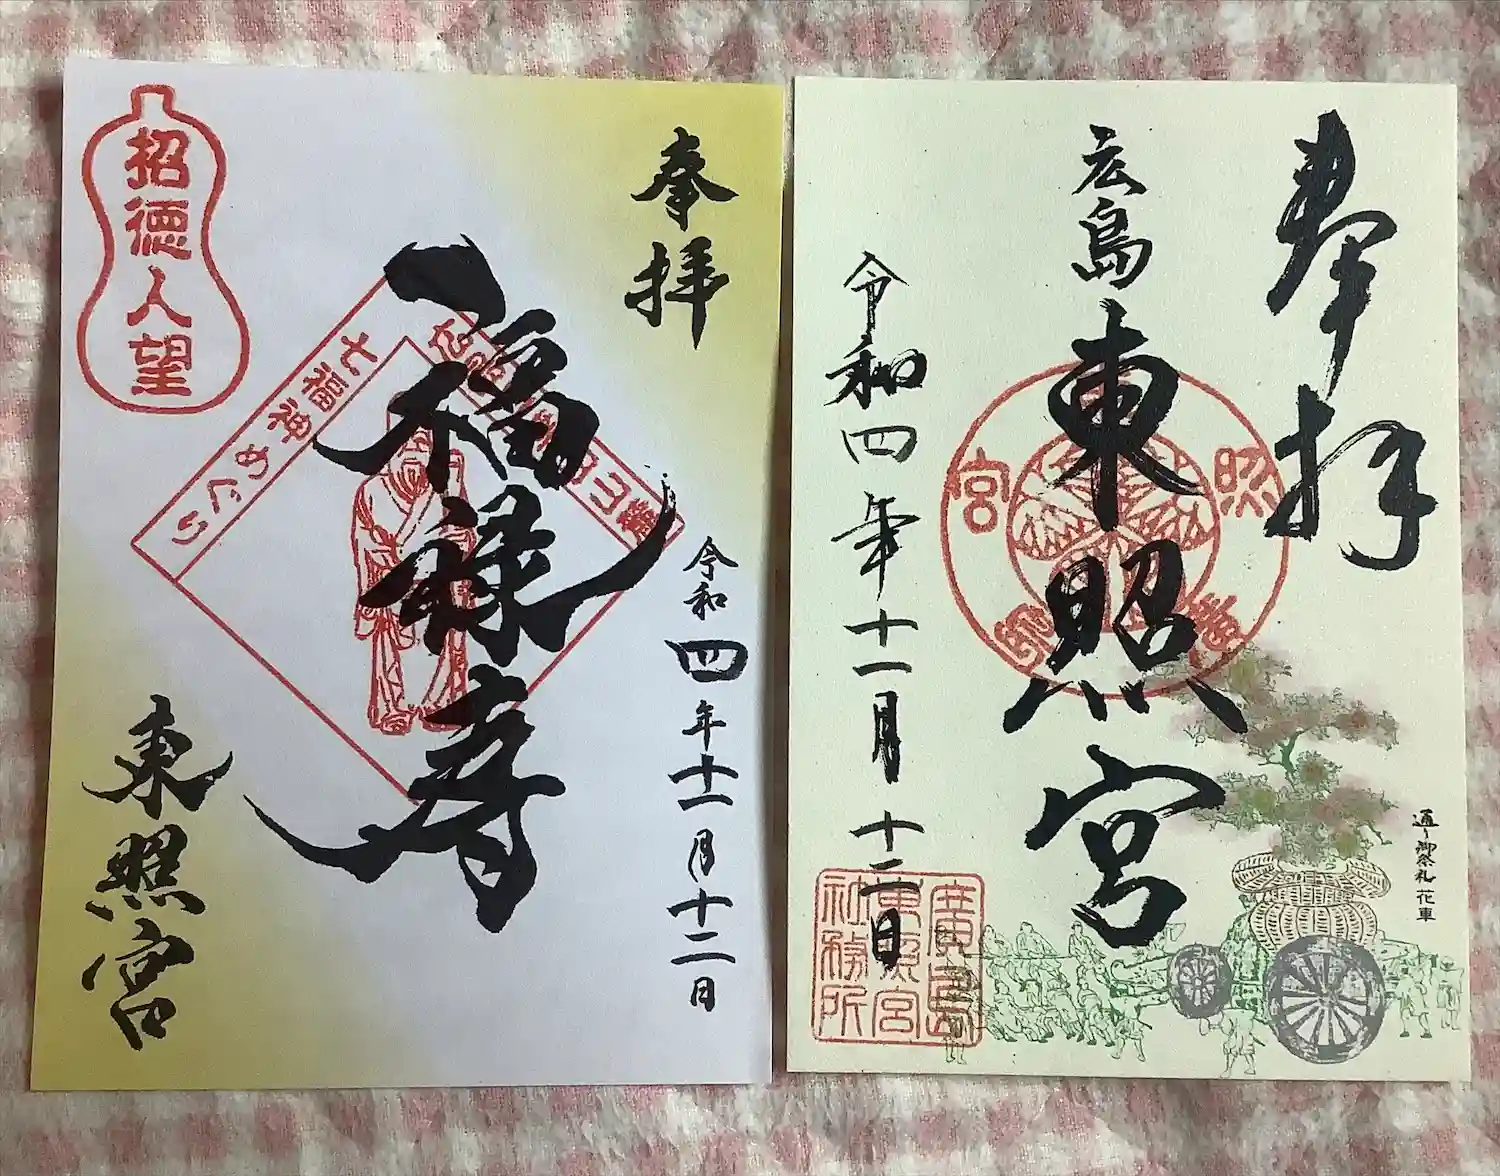 奉拝
招徳人望
七福神めぐり
福禄寿
令和四年十一月十二日
東照宮
奉拝
広島
東照宮
令和四年十一月十二日
照
宮
通り御祭礼 花車
廣島
東照宮
社務所